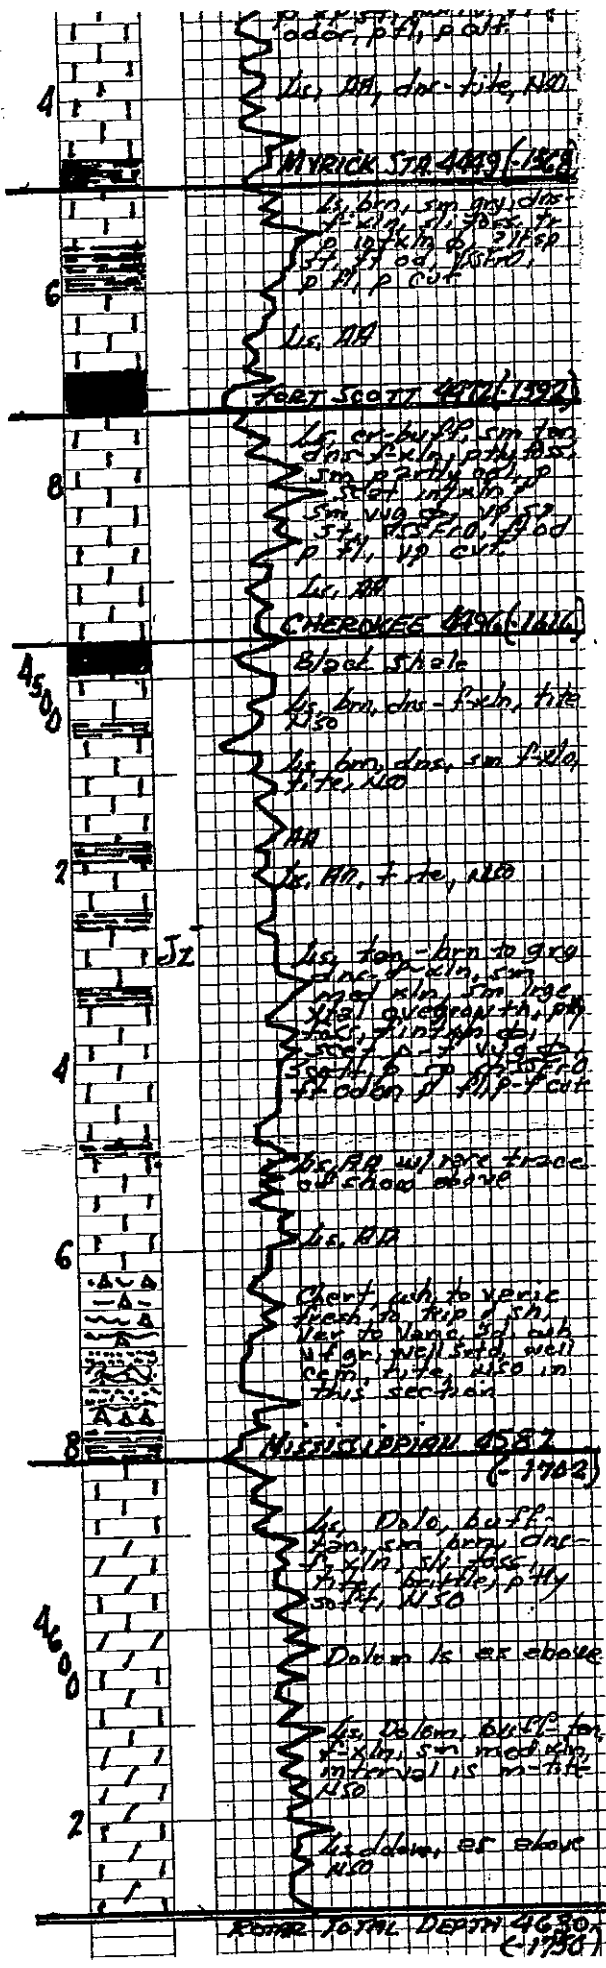 odor, p fl, p cut.
4
Ls, AA, dns-tite, NSO
MYRICK STA 4449 (-1569)
Ls, brn, sm gry, dns-
f-xln, sl, foss, tr
p intxln
p fl, p cut
6
Ls, AA
FORT SCOTT 4472 (-1592)
Ls, cr-buff, sm tan
dns f-xln, ptly foss,
sm partly ool, p
8
scat intxln
sm vug
p fl, vp cut
Ls, AA
CHEROKEE 4496 (-1616)
Black Shale
4500
Ls, brn, dns-f-xln, tite
NSO
Ls, brn, dns, sm f-xln,
tite, NSO
AA
2
Ls, AA, tite, NSO
Jz
Ls, tan-brn to gry
dns-f-xln, sm
med xln, sm lrge
xtal overgrowth, ptly
4
ft odor, p fl, p-f cut
Ls, AA w/ rare trace
of show above
6
Ls, AA
Chert, wh, to varic
fresh to trip, sh,
var to varic, Sd, wh
vf gr, well srtd, well
cem, tite, NSO in
this section
8
MISSISSIPPIAN 4582
(-1702)
Ls, Dolo, buff-
tan, sm brn, dns-
f-xln, sli foss,
tite, brittle, ptly
soft, NSO
4600
Dolom ls as above
Ls, Dolom, buff-tan,
f-xln, sm med xln,
interval is m-tite
NSO
2
Ls, dolom, as above
NSO
ROTARY TOTAL DEPTH 4630
(-1750)